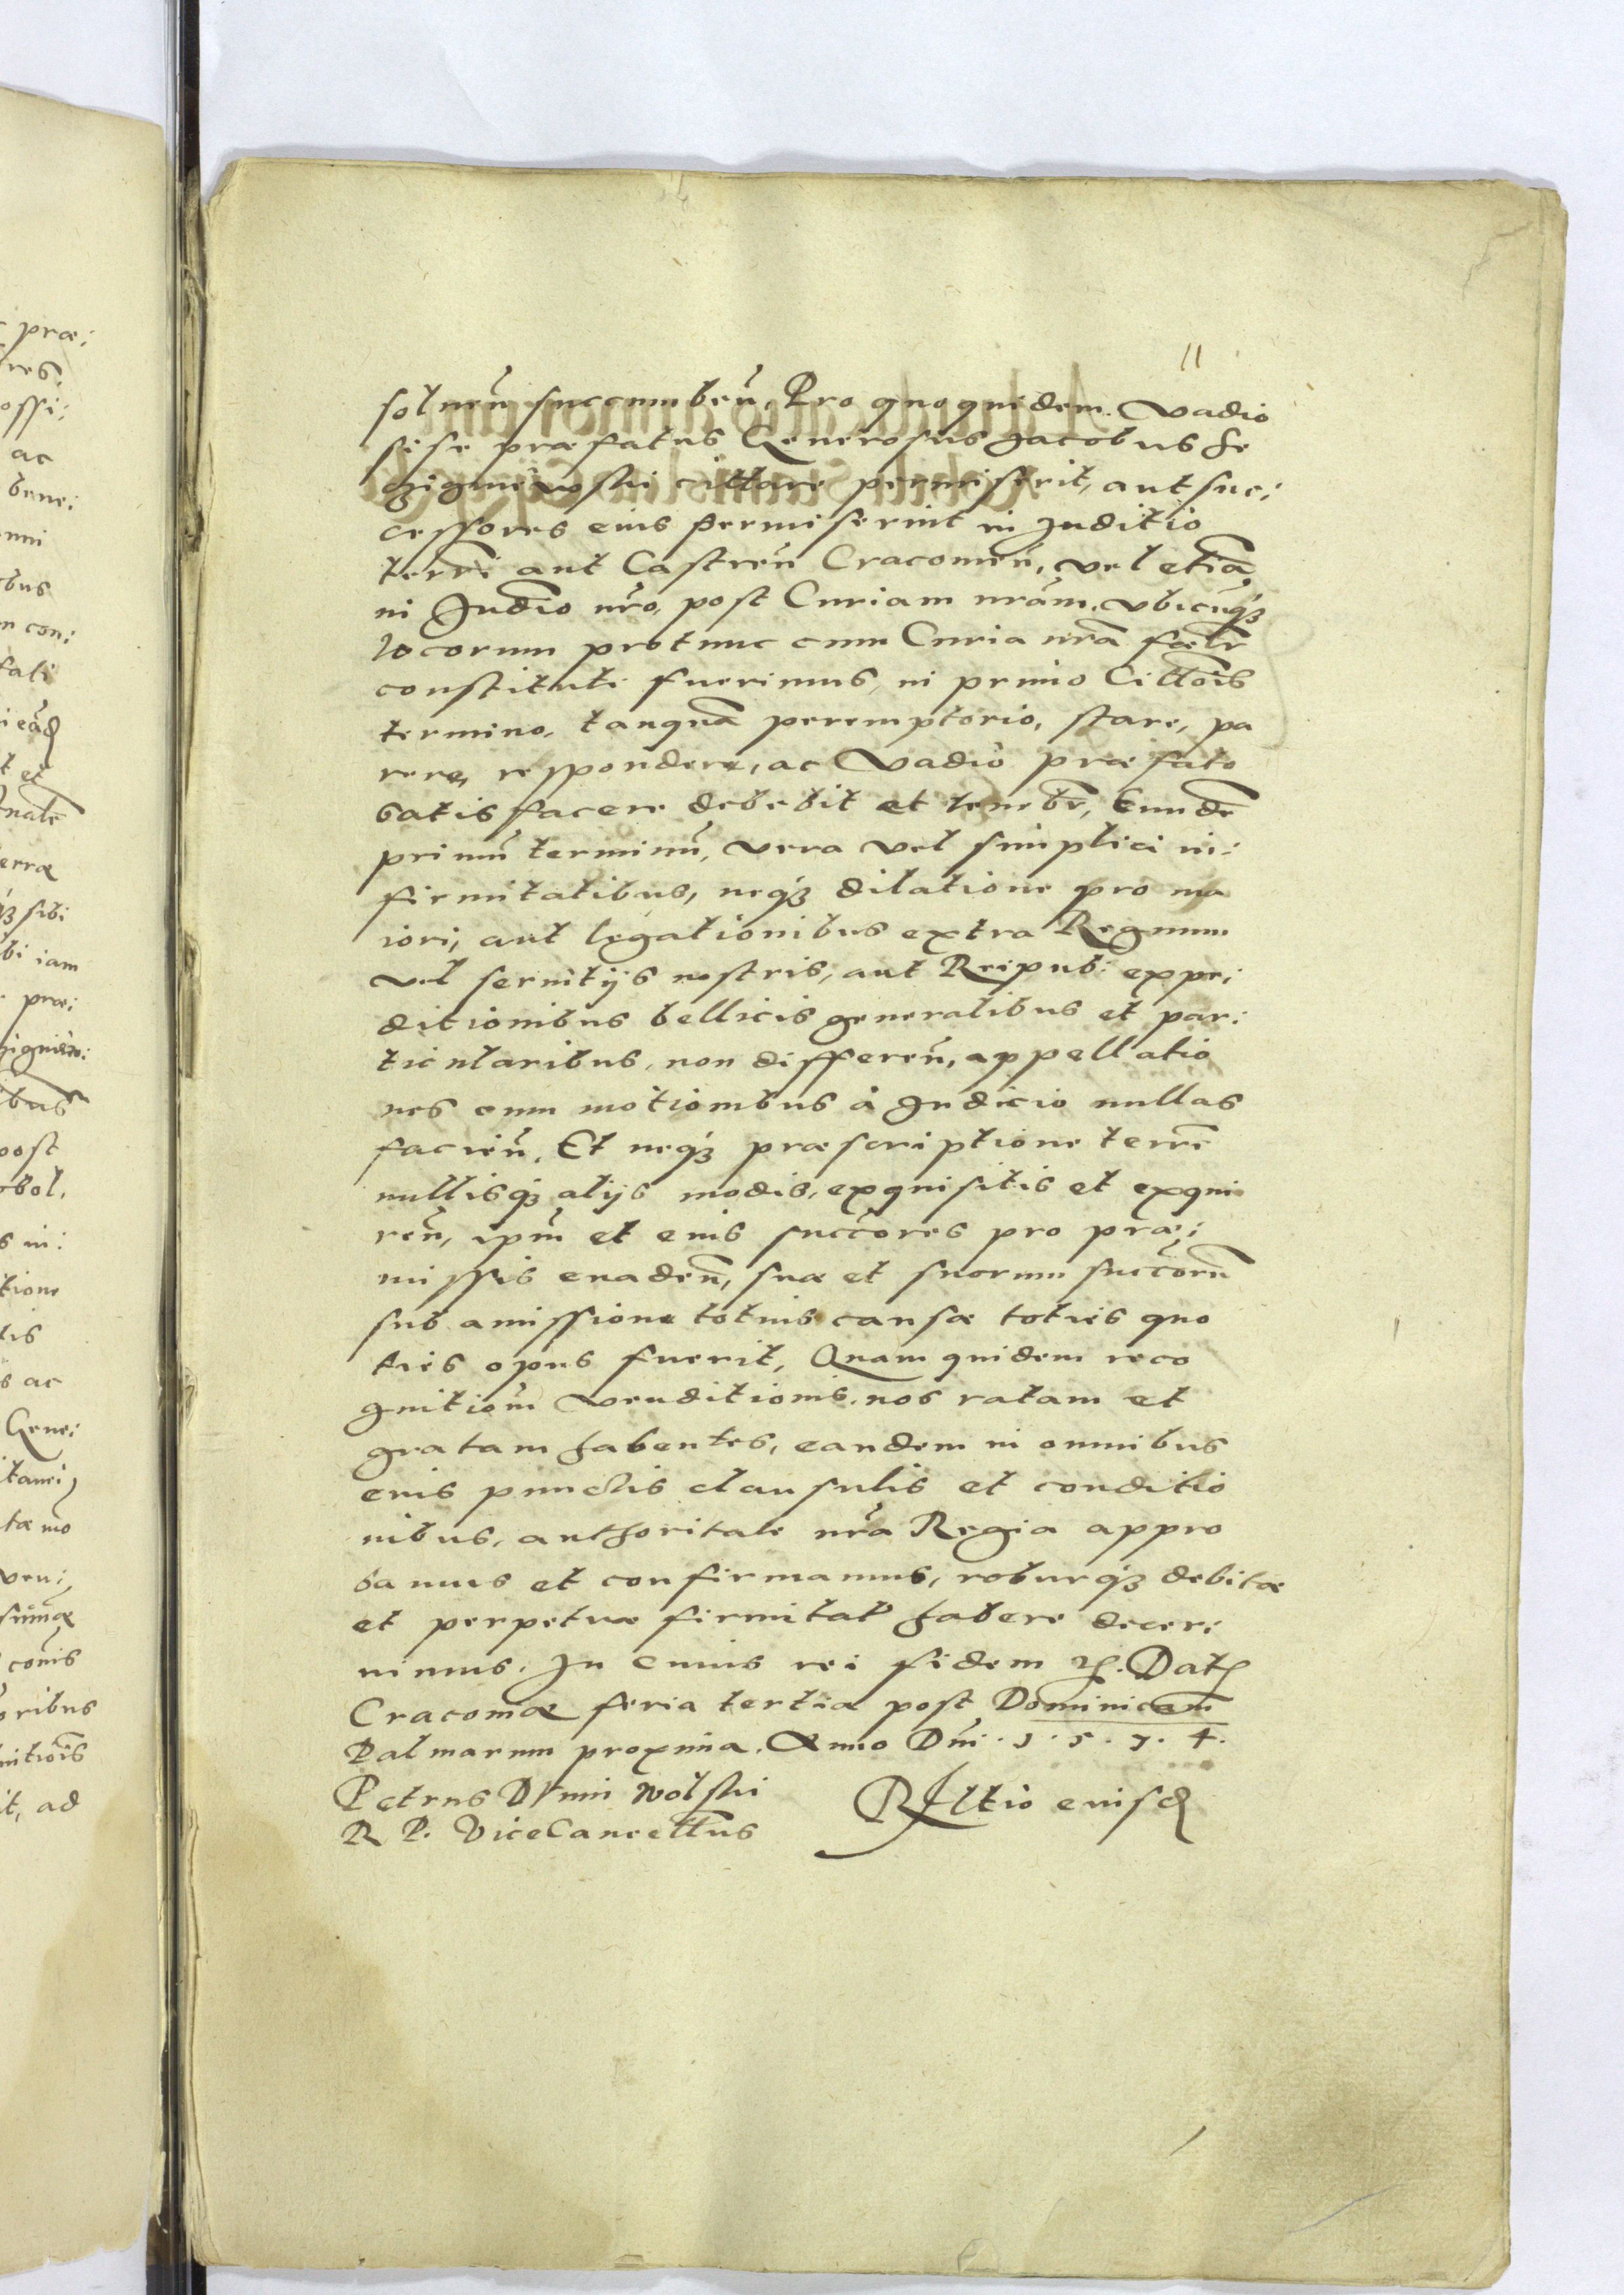 11
soluen̄ succumben̄, Pro quoquidem. Vadio
sese præfatus Generosus Jacobus Se
cigniewski cittare permiserit, aut suc:
cessores eius permiserint in Juditio
terr̄i aut Castren̄ Cracouien̄, vel etiā
in Judīo nr̄o, post Curiam nr̄am, vbicūq;
locorum protunc cum Curia nr̄a fælr̄
constituti fuerimus, in primo Citt̄ois
termino, tanquā peremptorio, stare, pa
rere, respondere, ac Vadio præfato
satisfacere debebit et tenebr̄, Eundē
primū terminū, vera vel simplici in:
firmitatibus, neq; dilatione pro ma
iori, aut legationibus extra Regnum
vel seruitijs nostris, aut Reipub: expe:
ditionibus bellicis generalibus et par:
ticularibus, non differen̄, appellatio
nes cum motionibus à Judicio nullas
facien̄, Et neq; præscriptione terrē
nullisq; alijs modis, exquisitis et exqui
ren̄, ipm̄ et eius succ̄ores pro præ:
missis euaden̄, suæ et suorum succ̄orū
sub amissione totius causæ toties quo
ties opus fuerit, Quam quidem reco
gnitiōm venditionis, nos ratam et
gratam habentes, eandem in omnibus
eius punctis clausulis et conditio
nibus, authoritate nr̄a Regia appro
bamus et confirmamus, roburq; debitæ
et perpetuæ firmitat̄ habere decer:
nimus. In cuius rei fidem &c. Dat
Cracouiæ feria tertia post Dominicam
Palmarum proxima. Anno Dn̄i. 1. 5. 7. 4.
Petrus Dunin Wolski
R P. ViceCancell̄us
Rltio eiusd